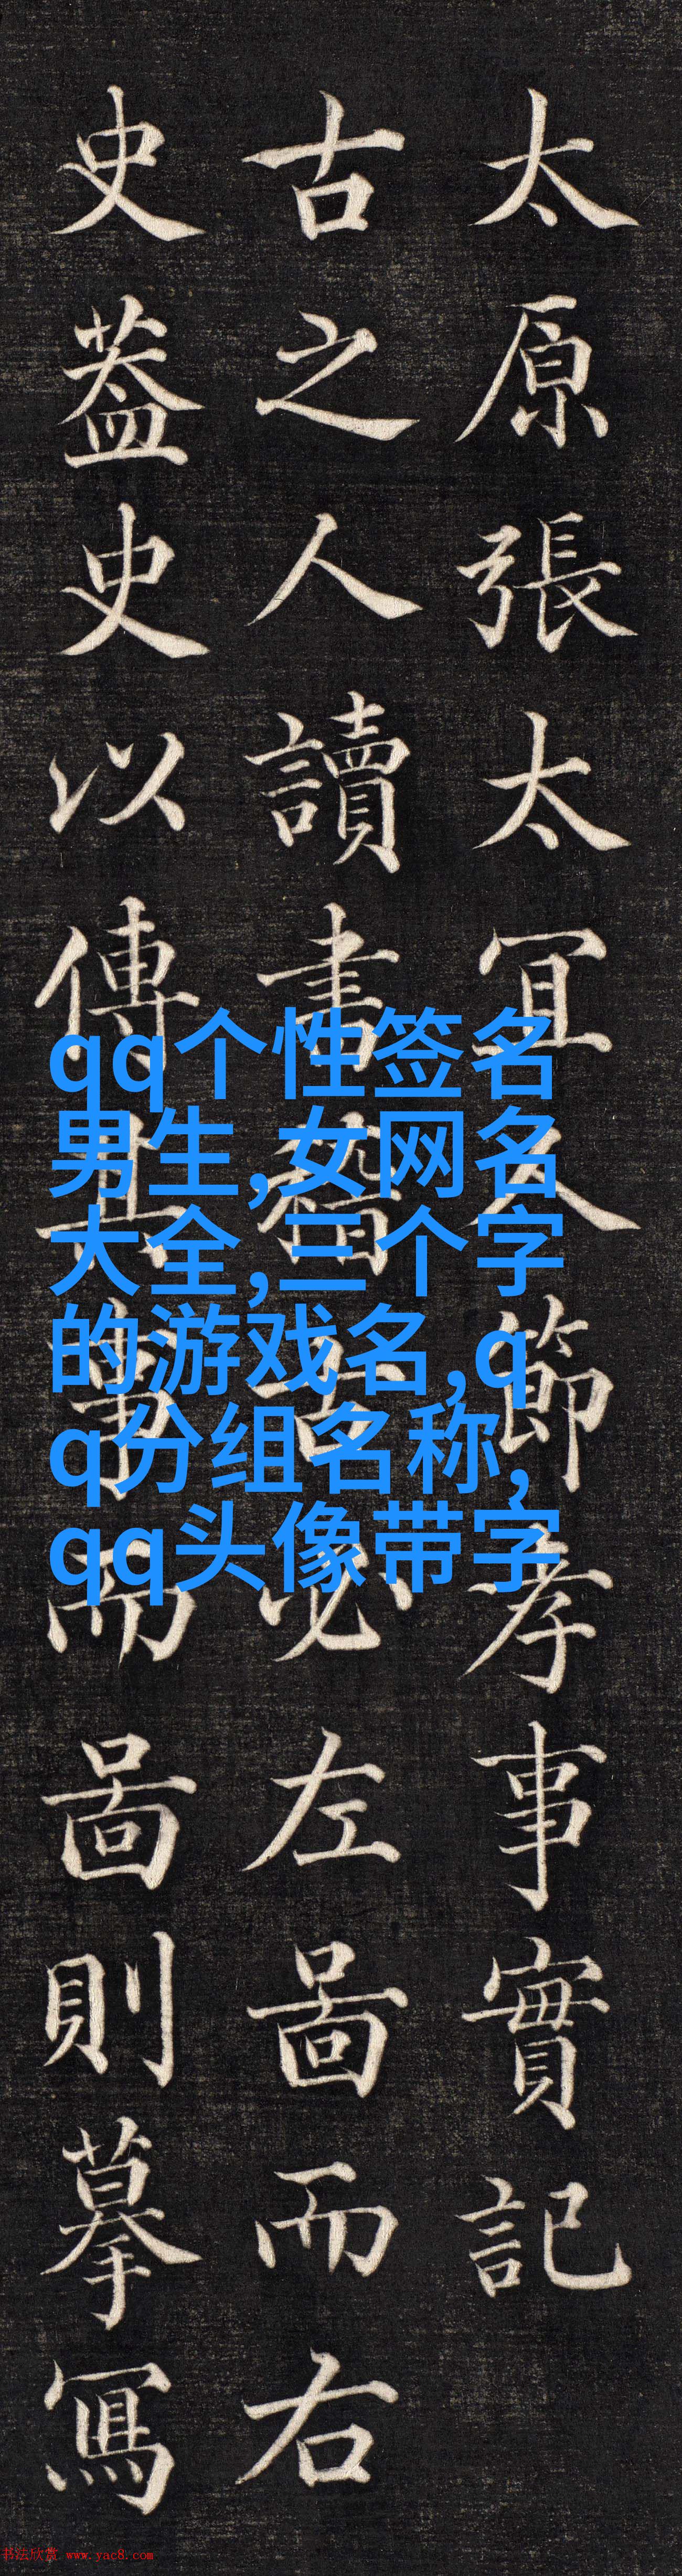 太原張太冝人節孝事實記
古之人讀書稽古必左啚而右
史葢史以傳其事而啚則摹冩
qq个性签名
男生,女网名
大全,三个字
的游戏名,q
q分组名称,
qq头像带字
书法欣赏 www.yac8.com